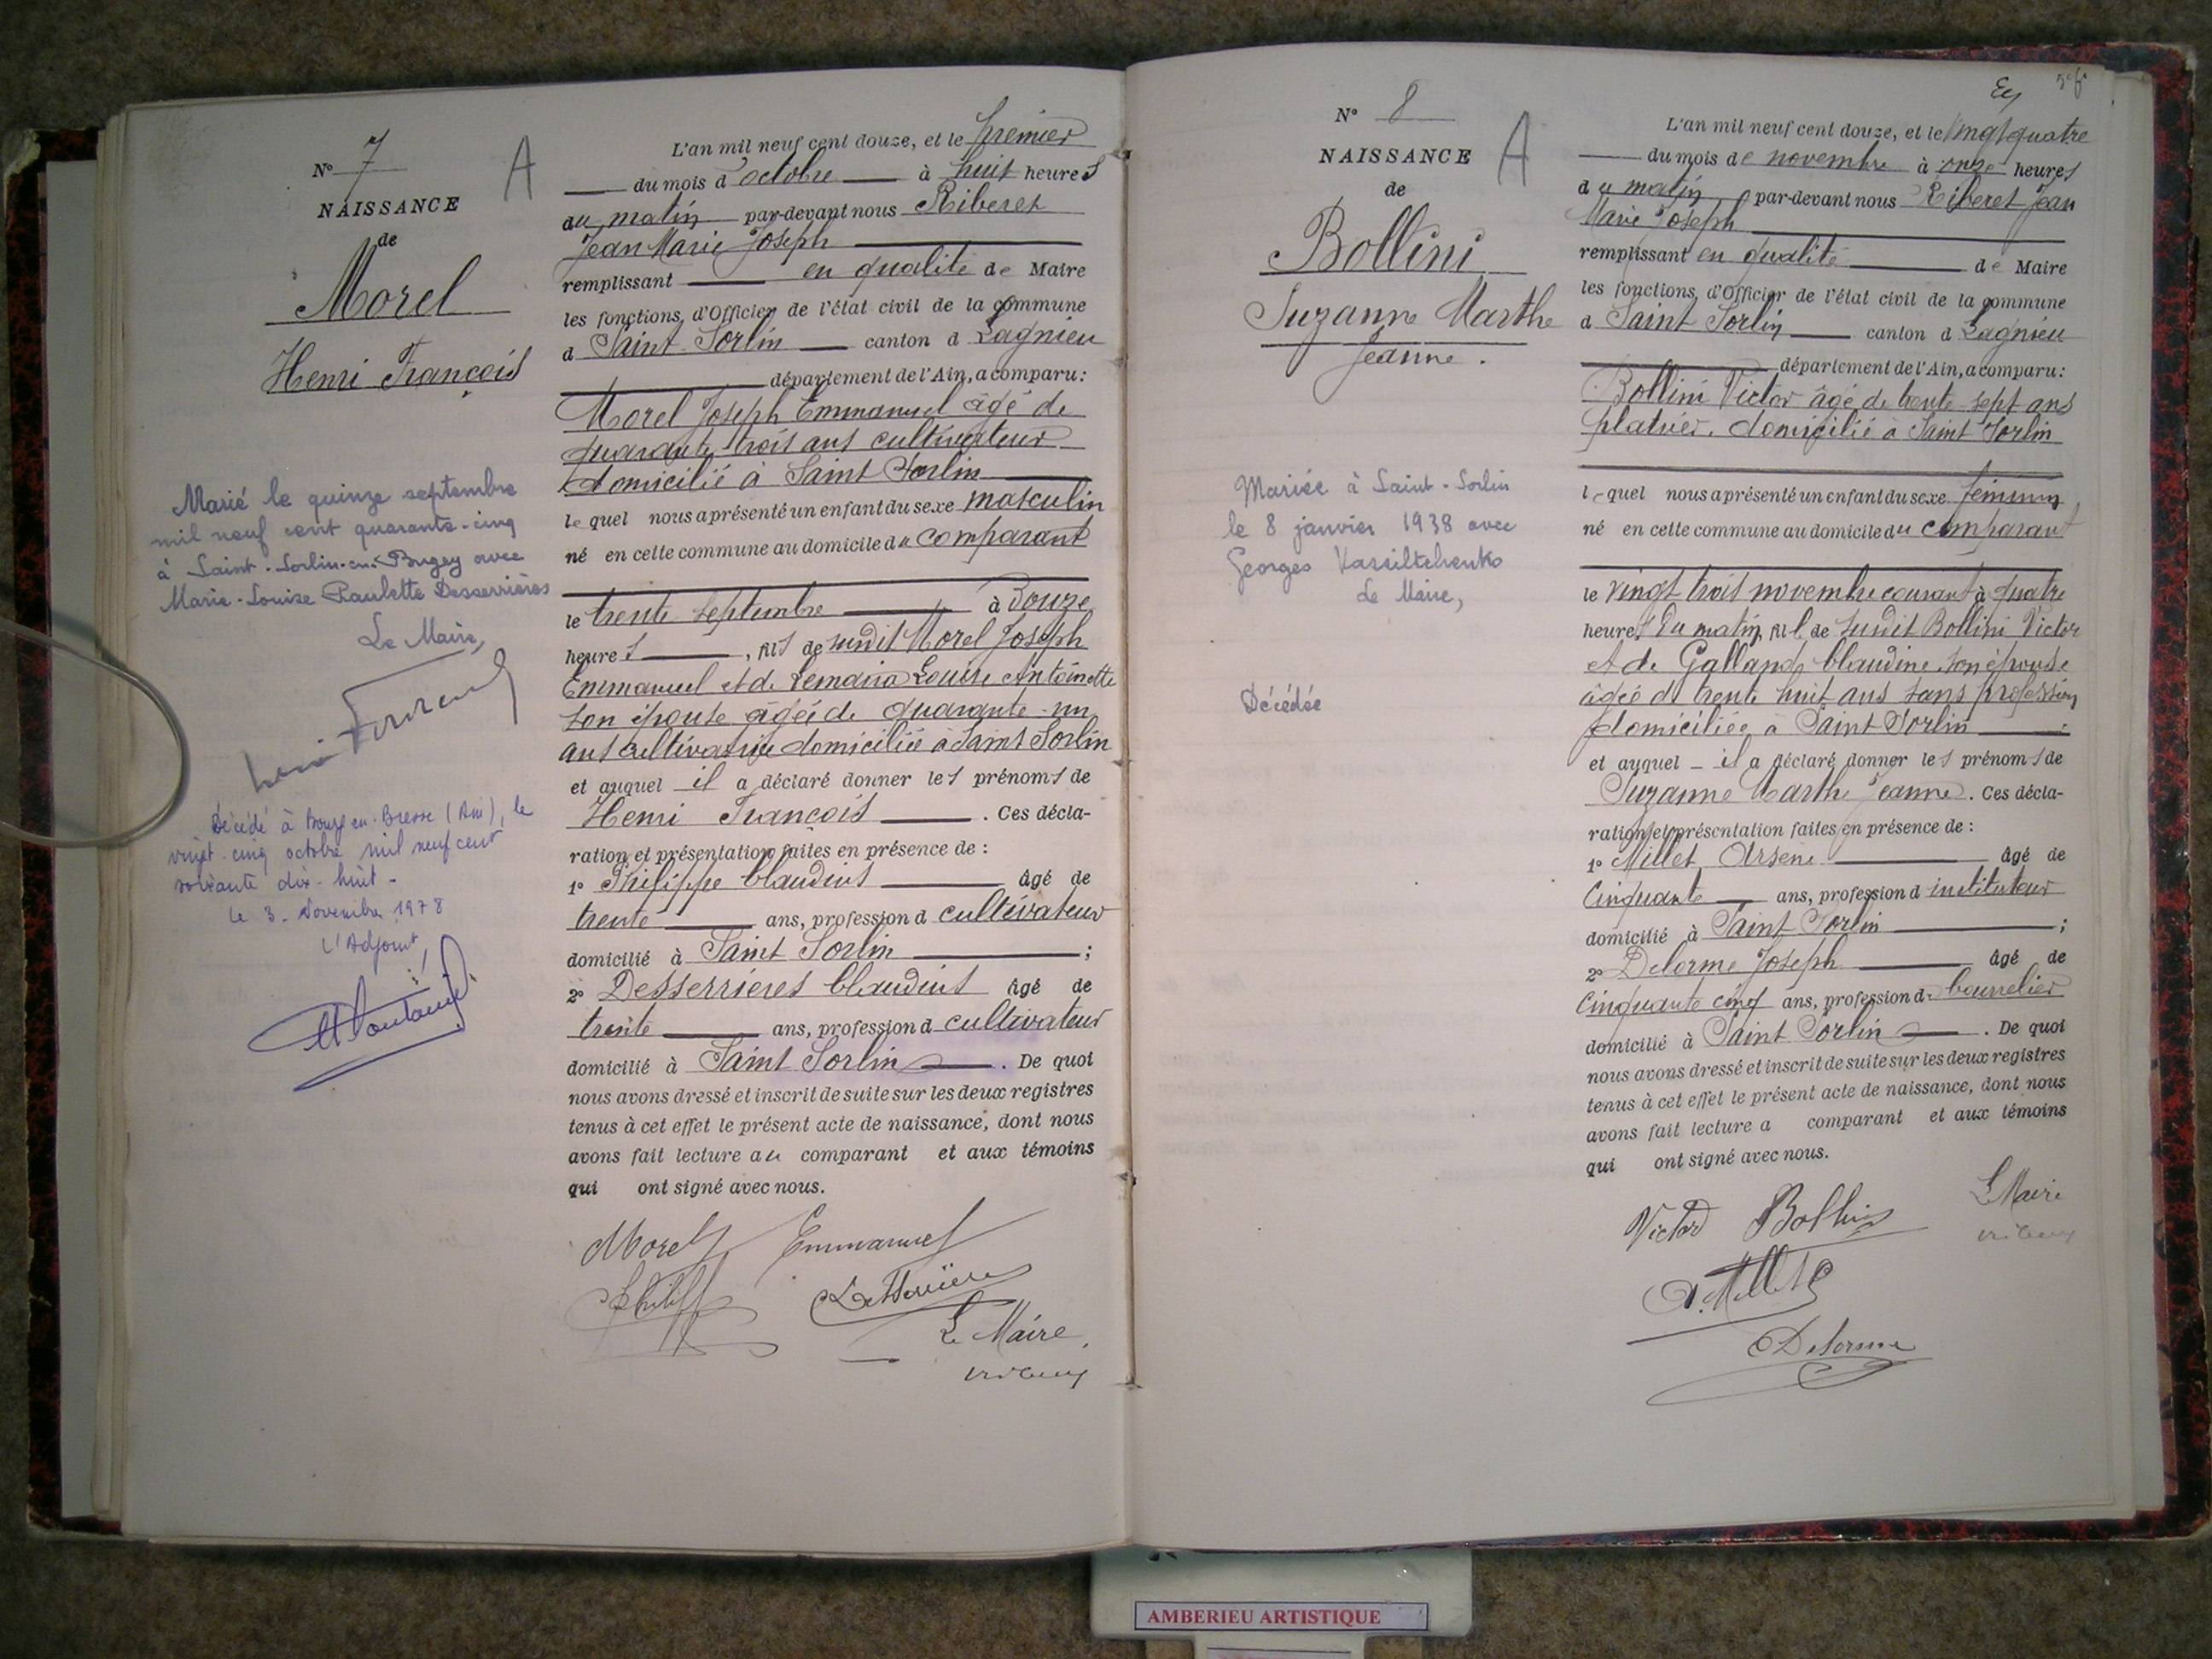 N° 7
NAISSANCE
de
Morel
Henri François
A
Marié le quinze septembre
mil neuf cent quarante-cinq
à Saint-Sorlin-en-Bugey avec
Marie-Louise Paulette Desserrières
Le Maire,
Décédé à Bourg-en-Bresse (Ain), le
vingt-cinq octobre mil neuf cent
soixante dix-huit -
le 3 - Novembre 1978
L'Adjoint,
L'an mil neuf cent douze, et le premier
du mois d'octobre à huit heures
du matin par-devant nous Riberet
Jean Marie Joseph
remplissant en qualité de Maire
les fonctions d'Officier de l'état civil de la commune
d Saint Sorlin canton d Lagnieu
département de l'Ain, a comparu :
Morel Joseph Emmanuel âgé de
quarante trois ans cultivateur
domicilié à Saint Sorlin
lequel nous a présenté un enfant du sexe masculin
né en cette commune au domicile du comparant
le trente septembre à Douze
heures , fils de susdit Morel Joseph
Emmanuel et de Louise Antoinette
son épouse âgée de quarante-un
ans cultivatrice domiciliée à Saint Sorlin
et auquel il a déclaré donner les prénoms de
Henri François . Ces décla-
ration et présentation faites en présence de :
1° Philippe Claudius âgé de
trente ans, profession d cultivateur
domicilié à Saint Sorlin ;
2° Desserrières Claudius âgé de
trente ans, profession d cultivateur
domicilié à Saint Sorlin . De quoi
nous avons dressé et inscrit de suite sur les deux registres
tenus à cet effet le présent acte de naissance, dont nous
avons fait lecture au comparant et aux témoins
qui ont signé avec nous.
Morel Emmanuel
Philippe Desserrières
Le Maire,
N° 8
NAISSANCE
de
Bollini
Suzanne Marthe
Jeanne.
A
Mariée à Saint-Sorlin
le 8 janvier 1938 avec
Georges Vassiltchenko
Le Maire,
Décédée
L'an mil neuf cent douze, et le vingt quatre
du mois de novembre à onze heures
du matin par-devant nous Riberet Jean
Marie Joseph
remplissant en qualité de Maire
les fonctions d'Officier de l'état civil de la commune
d Saint Sorlin canton d Lagnieu
département de l'Ain, a comparu :
Bollini Victor âgé de trente sept ans
platrier, domicilié à Saint Sorlin
lequel nous a présenté un enfant du sexe féminin
né en cette commune au domicile du comparant
le vingt trois novembre courant à quatre
heures du matin, fill de susdit Bollini Victor
et de Galland Claudine son épouse
âgée de trente huit ans sans profession
domiciliée à Saint Sorlin
et auquel il a déclaré donner les prénoms de
Suzanne Marthe Jeanne. Ces décla-
ration et présentation faites en présence de :
1° Millet Arsène âgé de
Cinquante ans, profession d instituteur
domicilié à Saint Sorlin ;
2° Delorme Joseph âgé de
Cinquante cinq ans, profession d bourrelier
domicilié à Saint Sorlin . De quoi
nous avons dressé et inscrit de suite sur les deux registres
tenus à cet effet le présent acte de naissance, dont nous
avons fait lecture a comparant et aux témoins
qui ont signé avec nous.
Victor Bollini Le Maire
A. Millet
Delorme
AMBERIEU ARTISTIQUE